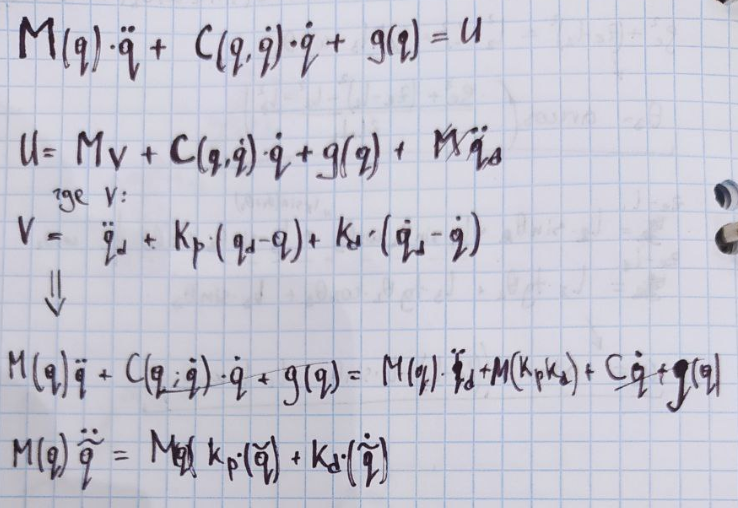 M(q)·q̈ + C(q,q̇)·q̇ + g(q) = U
U = Mv + C(q,q̇)·q̇ + g(q) + M q̈d
где V:
V = q̈d + Kp·(qd-q) + Kd·(q̇d-q̇)
⇓
M(q)q̈ + C(q,q̇)·q̇ + g(q) = M(q)·q̈d + M(KpKd) + Cq̇ + g(q)
M(q) q̃̈ = M(q)( Kp·(q̃) + Kd·(q̃̇)